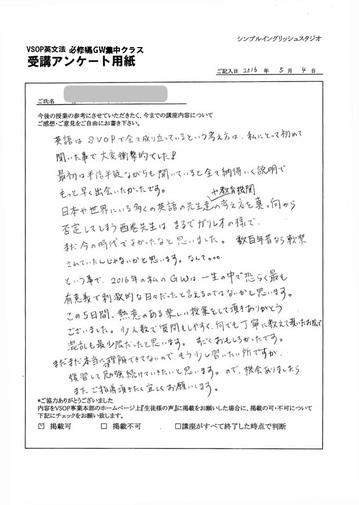 シンプルイングリッシュスタジオ
VSOP英文法 必修編GW集中クラス
受講アンケート用紙
ご記入日 2016 年 5 月 4 日
ご氏名
今後の授業の参考にさせていただきたく、今までの講座内容について
ご感想・ご意見をご自由にお書き下さい。
英語は SVOPで全て成り立っているという考え方は、私にとって初めて
聞いた事で大変衝撃的でした!
最初は半信半疑ながらも聞いていると全て納得いく説明で
もっと早く出会いたかったです。
+教育機関
日本や世界にいる多くの英語の先生達の考え方を真っ向から
否定してしまう西巻先生は まるでガリレオの様で、
まだ今の時代でよかったなと思いました。 数百年前なら軟禁
されていたんじゃないかと思います。なんて。。。
という事で、2016年の私のGWは、一生の中で恐らく最も
有意義で刺激的な日々だったと言えるのではないかと思います。
この5日間、熱意のある楽しい授業をして頂きありがとう
ございました。少人数で質問もしやすく、何でも丁寧に教えて頂いたお陰で
混乱も最少限だったと思います。 すごくおもしろかったです。
まだまだ本当に理解できてないので もう少し習いたい所ですが、
復習して勉強続けていきたいと思います。ので、機会ありましたら
またご指導頂きたく宜しくお願いします。
*ご協力ありがとうございました
内容をVSOP事業本部のホームページ上『生徒様の声』に掲載をお願いした場合に、掲載の可・不可について
下記にチェックをお願い致します。
☑ 掲載可 □ 掲載不可 □講座がすべて終了した時点で判断